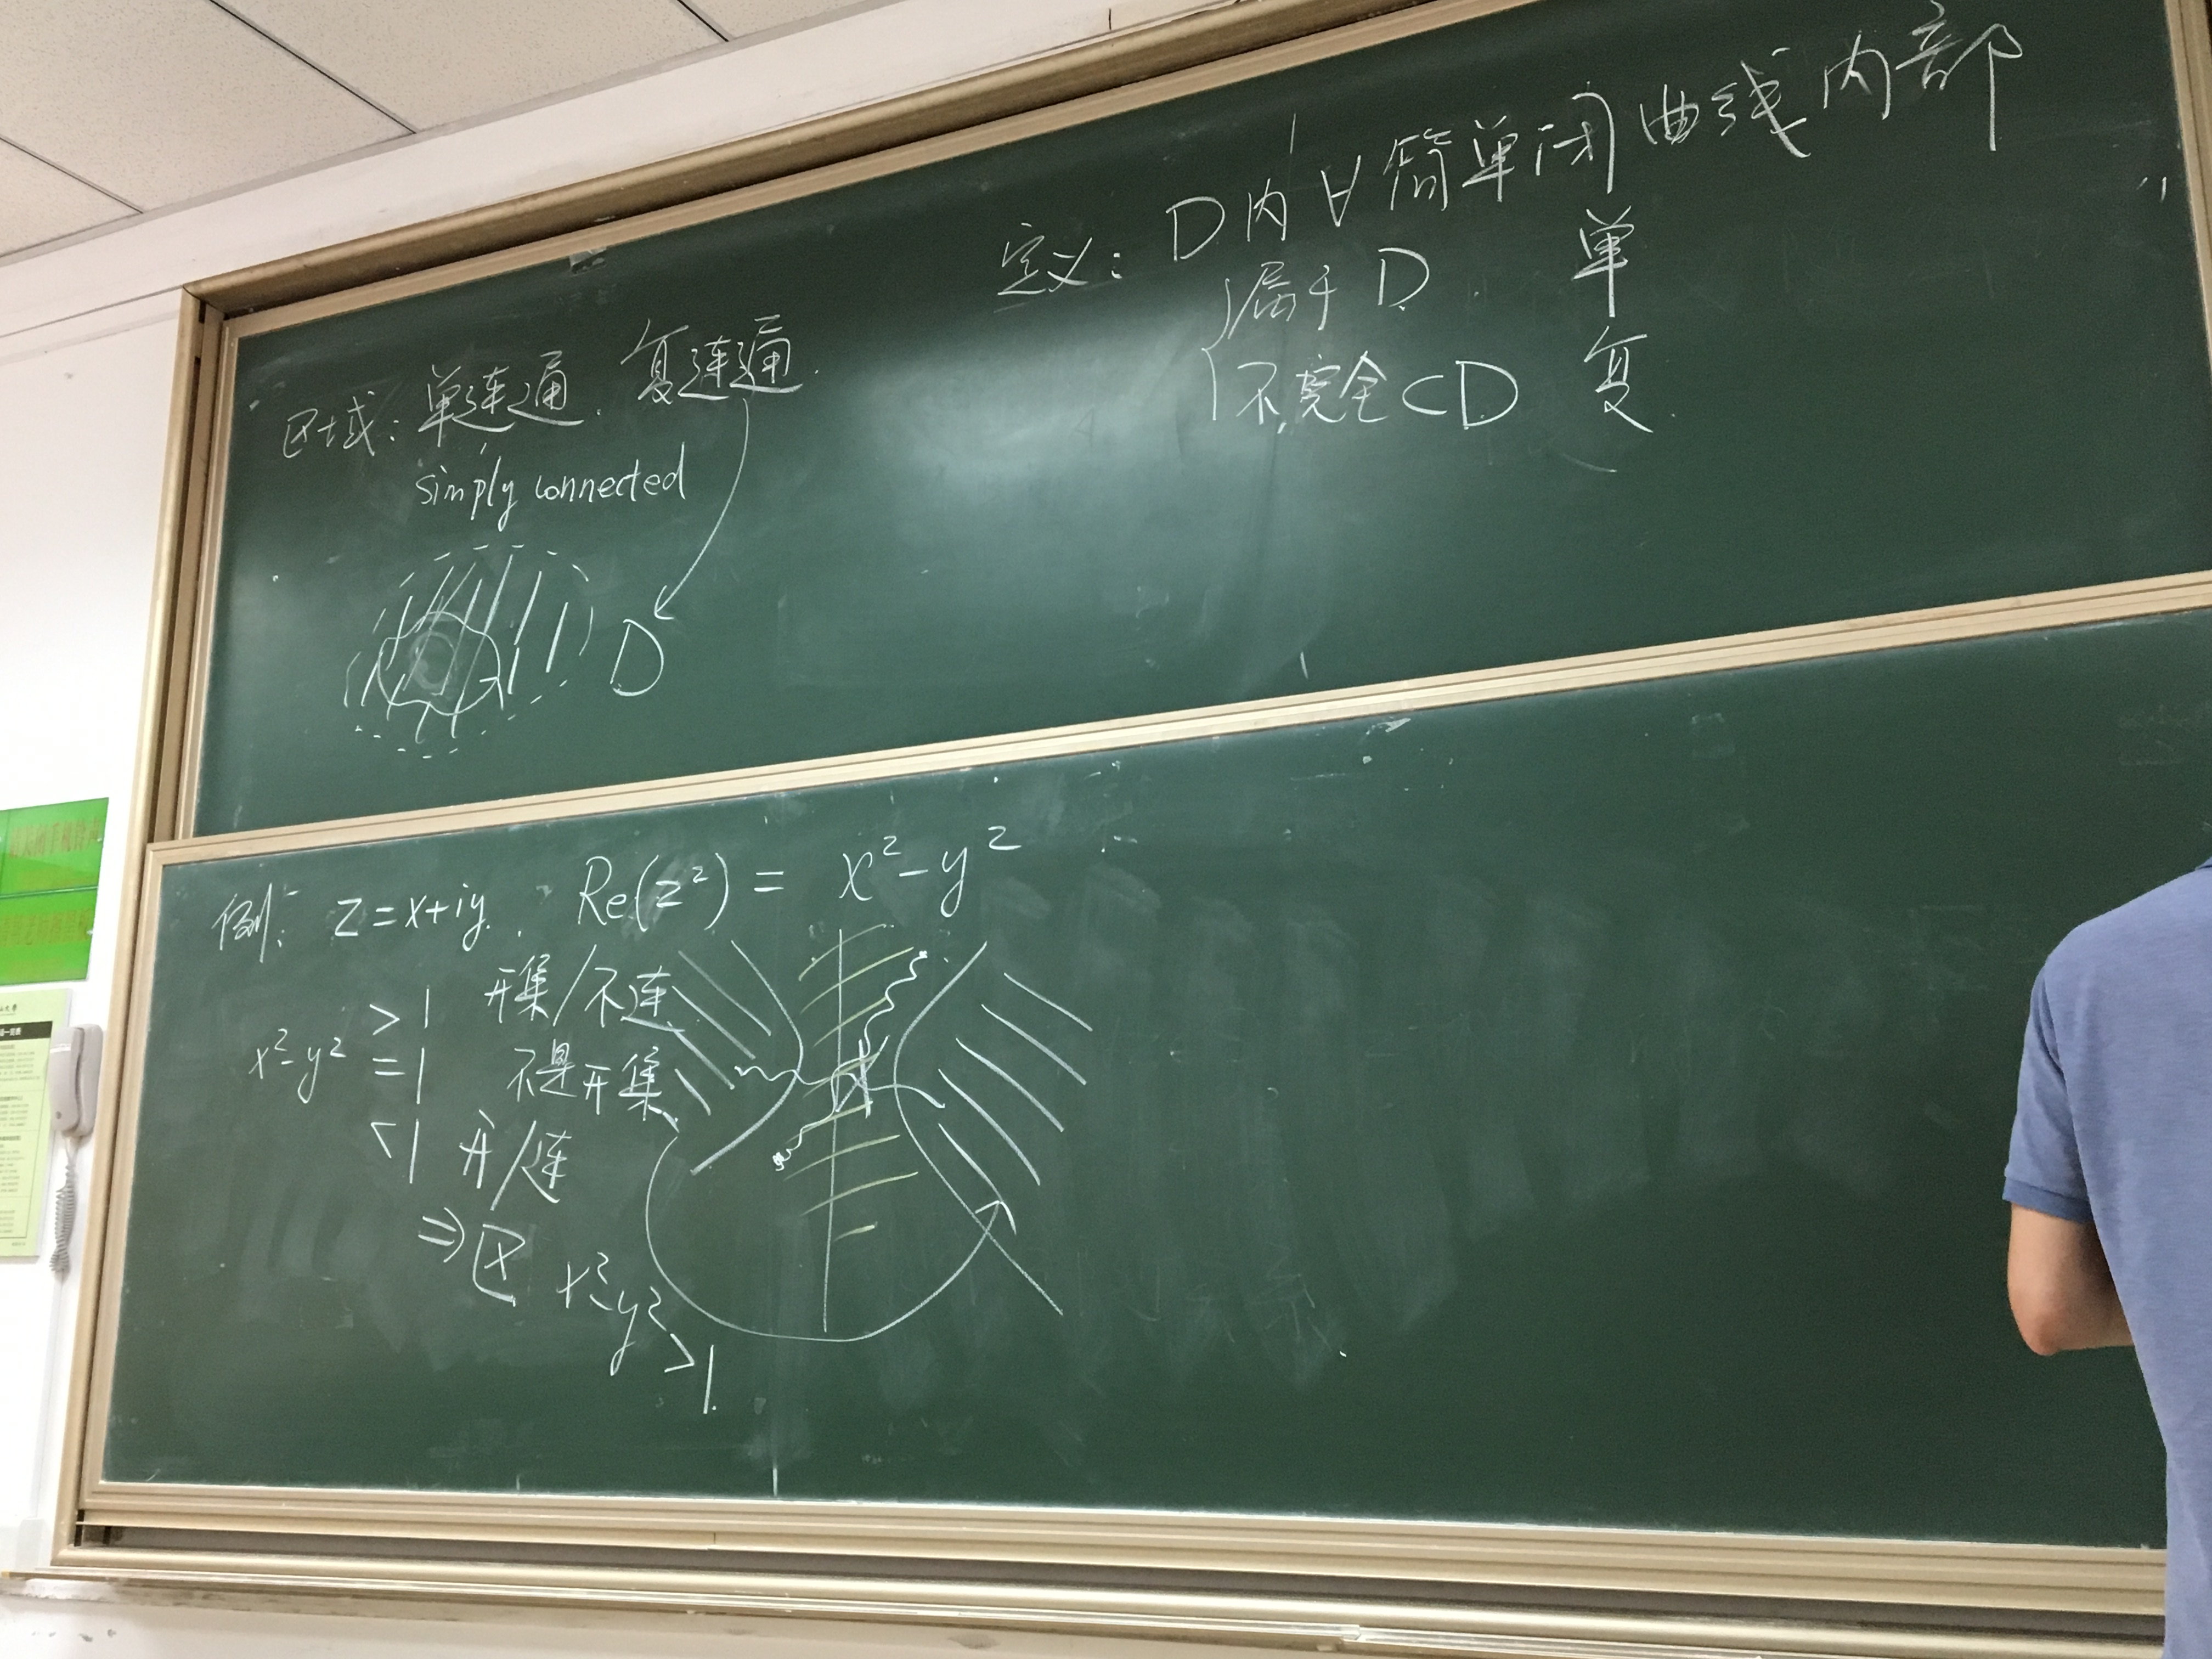 区域: 单连通. 复连通.
simply connected
D
定义: D内∀简单闭曲线内部
属于 D. 单
不完全⊂D 复.
例: z=x+iy. Re(z²) = x²-y²
>1 开集/不连
x²-y² =1 不是开集
<1 开/连
⇒区
x²-y²>1.